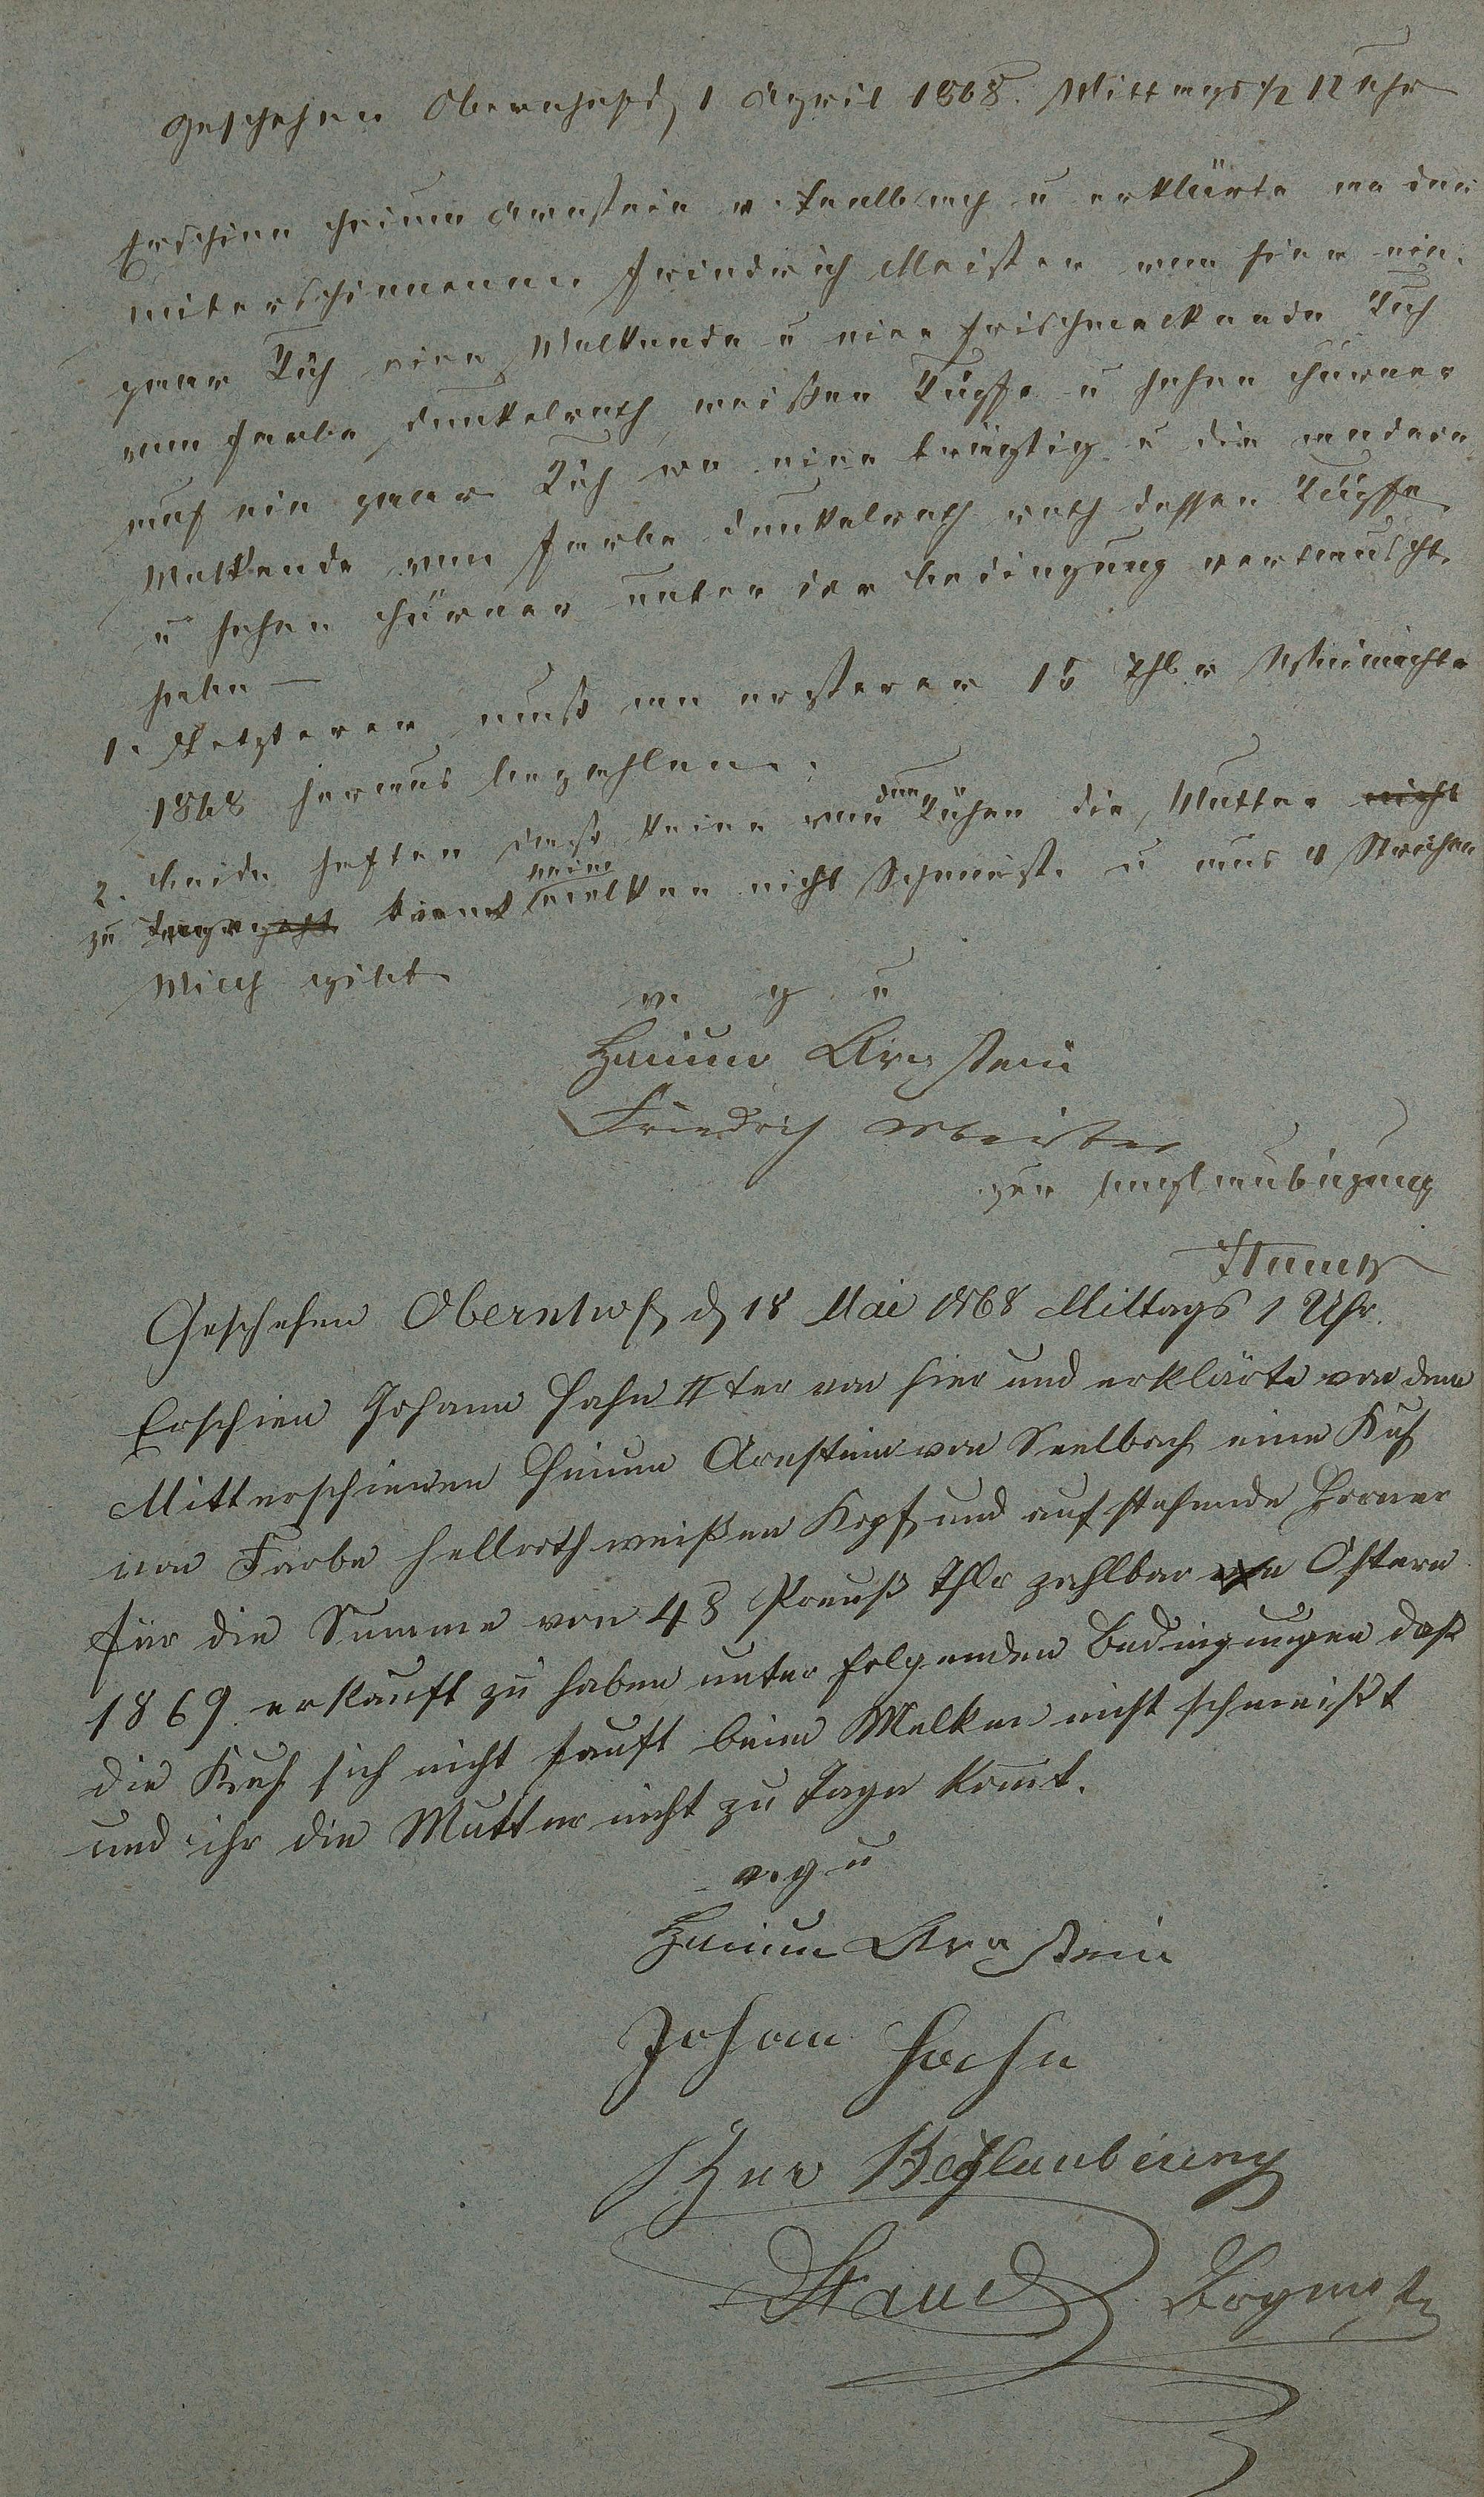 Geschehen Oberndorf d 1 April 1868. Mittags 1/2 12 Uhr
Erschien Heium Arnstein v. Seelbach u erklärte an den
miterschienenen Friedrich Meister von hier ein
paar Küh eine Melkende u eine frischmelkende Kuh
von Farbe dunkelroth weißen Küpfe u hohen Hürner
auf ein paar Küh wo eine trägtig u die andere
Melkende von Farbe dunkelroth roth dessen Küpfe
u hohen Hürner unter der bedingung vertauscht
haben —
1. Letzterer muß an ersterer 15 Thlr Weinachte
1868 heraus bezahlen.
2. beide haften das keine von den Kühen die Mutter nicht
zu Tage geht komt beim melken nicht Schmeist u aus 4 Strichen
Milch gibt
v. g. u
Heium Arnstein
Friedrich Meister
zur beglaubigung
Staudt
Geschehen Oberndorf d 18 Mai 1868 Mittags 1 Uhr.
Erschien Johann Hahn IIter von hier und erklärte von dem
Mitterschienen Heium Arnstein von Seelbach eine Kuh
von Farbe hellroth weißen Kopf und aufstehende Hörner
für die Summe von 48 Preuß Thlr zahlbar Ostern
1869 erkauft zu haben unter folgenden Bedingungen daß
die Kuh sich nicht sauft beim Melken nicht schmeißt
und ihr die Mutter nicht zu Tage komt.
v. g u
Heium Arnstein
Johann Hahn
Zur Beglaubigung
Staudt Bürgmstr